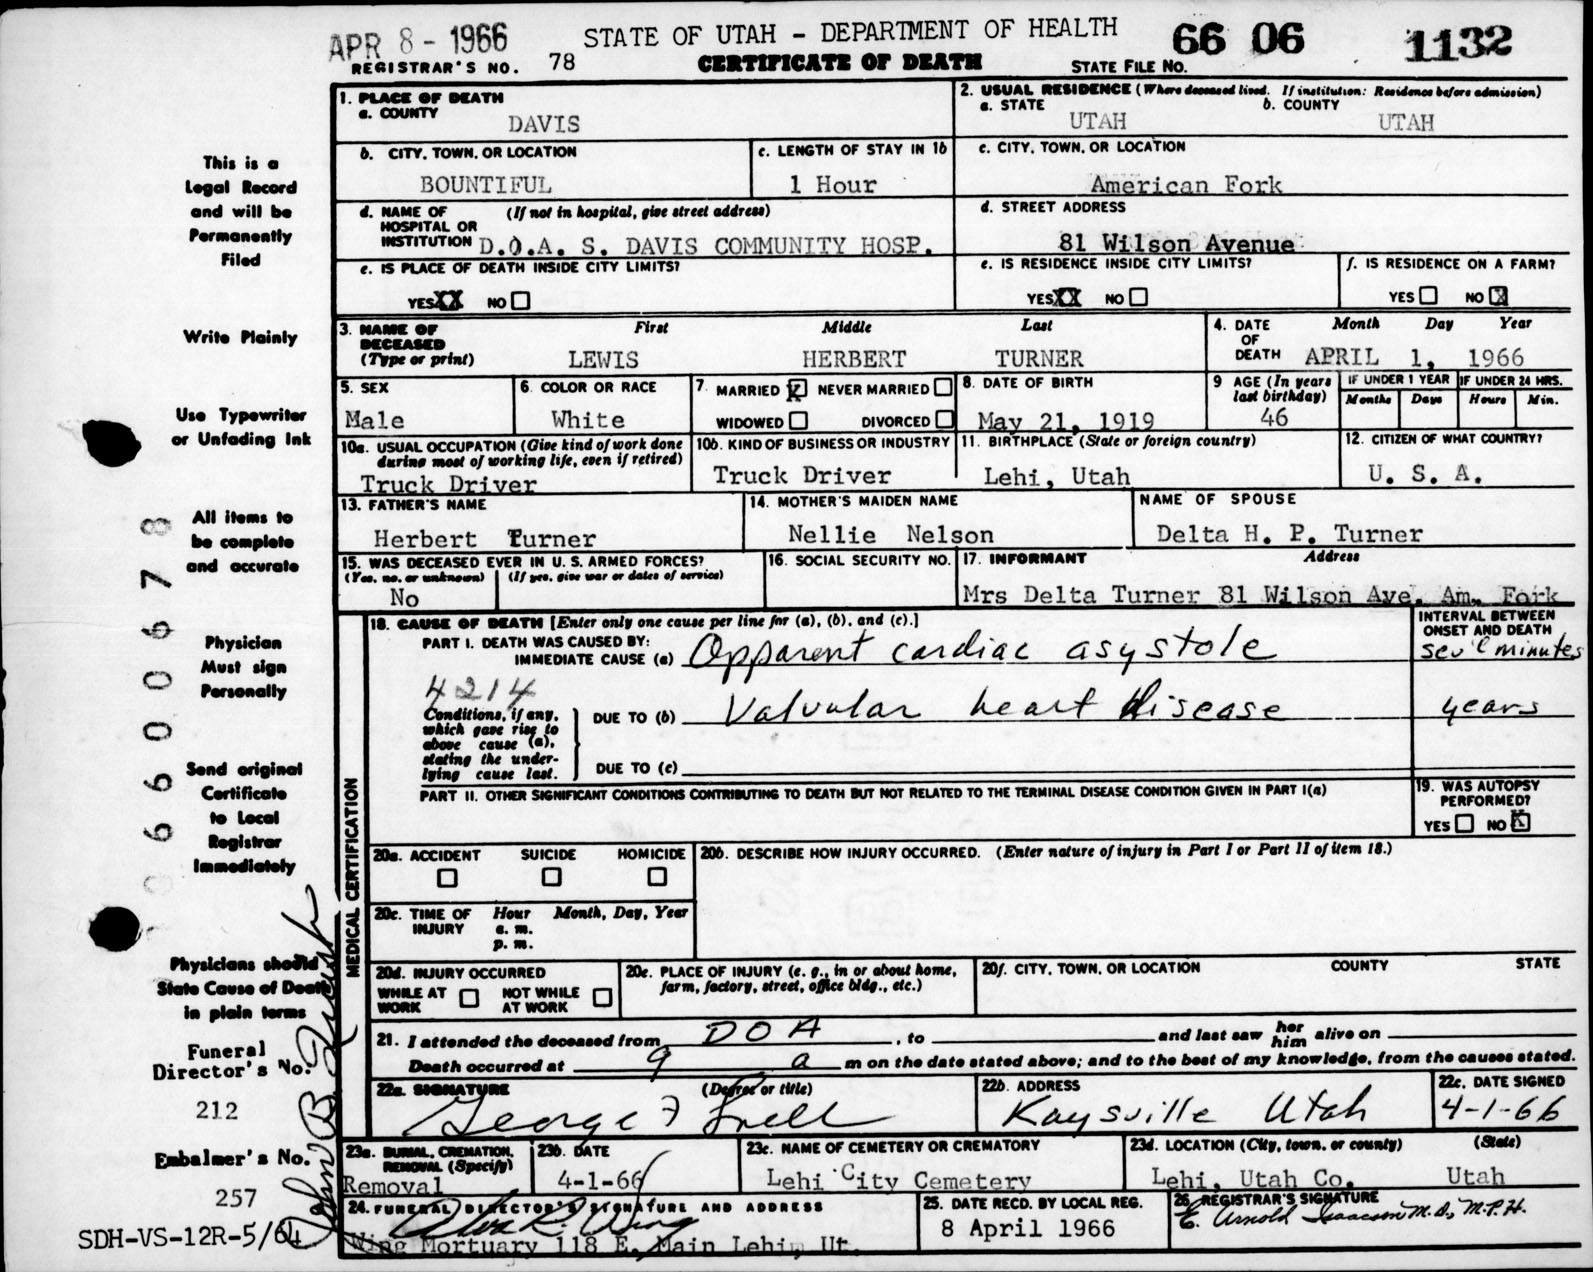 APR 8 - 1966 STATE OF UTAH - DEPARTMENT OF HEALTH 66 06 1132
REGISTRAR'S NO. 78 CERTIFICATE OF DEATH STATE FILE NO.
1. PLACE OF DEATH
a. COUNTY
DAVIS
2. USUAL RESIDENCE (Where deceased lived. If institution: Residence before admission)
a. STATE b. COUNTY
UTAH UTAH
b. CITY, TOWN, OR LOCATION
BOUNTIFUL
c. LENGTH OF STAY IN 1b
1 Hour
c. CITY, TOWN, OR LOCATION
American Fork
d. NAME OF (If not in hospital, give street address)
HOSPITAL OR
INSTITUTION D.O.A. S. DAVIS COMMUNITY HOSP.
d. STREET ADDRESS
81 Wilson Avenue
e. IS PLACE OF DEATH INSIDE CITY LIMITS?
YES XX NO
e. IS RESIDENCE INSIDE CITY LIMITS?
YES XX NO
f. IS RESIDENCE ON A FARM?
YES NO X
3. NAME OF DECEASED (Type or print)
First Middle Last
LEWIS HERBERT TURNER
4. DATE OF DEATH
Month Day Year
APRIL 1, 1966
5. SEX
Male
6. COLOR OR RACE
White
7. MARRIED X NEVER MARRIED
WIDOWED DIVORCED
8. DATE OF BIRTH
May 21, 1919
9 AGE (In years last birthday)
46
IF UNDER 1 YEAR
Months Days
IF UNDER 24 HRS.
Hours Min.
10a. USUAL OCCUPATION (Give kind of work done
during most of working life, even if retired)
Truck Driver
10b. KIND OF BUSINESS OR INDUSTRY
Truck Driver
11. BIRTHPLACE (State or foreign country)
Lehi, Utah
12. CITIZEN OF WHAT COUNTRY?
U. S. A.
13. FATHER'S NAME
Herbert Turner
14. MOTHER'S MAIDEN NAME
Nellie Nelson
NAME OF SPOUSE
Delta H. P. Turner
15. WAS DECEASED EVER IN U. S. ARMED FORCES?
(Yes, no, or unknown) (If yes, give war or dates of service)
No
16. SOCIAL SECURITY NO.
17. INFORMANT Address
Mrs Delta Turner 81 Wilson Ave. Am. Fork
MEDICAL CERTIFICATION
18. CAUSE OF DEATH [Enter only one cause per line for (a), (b), and (c).]
INTERVAL BETWEEN
ONSET AND DEATH
PART I. DEATH WAS CAUSED BY:
IMMEDIATE CAUSE (a) Apparent cardiac asystole sev'l minutes
4214
Conditions, if any,
which gave rise to
above cause (a),
stating the under-
lying cause last.
DUE TO (b) Valvular heart disease years
DUE TO (c)
PART II. OTHER SIGNIFICANT CONDITIONS CONTRIBUTING TO DEATH BUT NOT RELATED TO THE TERMINAL DISEASE CONDITION GIVEN IN PART I(a)
19. WAS AUTOPSY
PERFORMED?
YES NO X
20a. ACCIDENT SUICIDE HOMICIDE
20b. DESCRIBE HOW INJURY OCCURRED. (Enter nature of injury in Part I or Part II of item 18.)
20c. TIME OF INJURY
Hour Month, Day, Year
a. m.
p. m.
20d. INJURY OCCURRED
WHILE AT WORK NOT WHILE AT WORK
20e. PLACE OF INJURY (e. g., in or about home,
farm, factory, street, office bldg., etc.)
20f. CITY, TOWN, OR LOCATION COUNTY STATE
21. I attended the deceased from DOA, to and last saw her him alive on
Death occurred at 9 a m on the date stated above; and to the best of my knowledge, from the causes stated.
22a. SIGNATURE (Degree or title)
George F
22b. ADDRESS
Kaysville Utah
22c. DATE SIGNED
4-1-66
23a. BURIAL, CREMATION,
REMOVAL (Specify)
Removal
23b. DATE
4-1-66
23c. NAME OF CEMETERY OR CREMATORY
Lehi City Cemetery
23d. LOCATION (City, town, or county) (State)
Lehi, Utah Co. Utah
24. FUNERAL DIRECTOR'S SIGNATURE AND ADDRESS
Wing
Wing Mortuary 118 E. Main Lehi, Ut.
25. DATE RECD. BY LOCAL REG.
8 April 1966
26. REGISTRAR'S SIGNATURE
E. Arnold Isaacson M.D., M.P.H.
This is a
Legal Record
and will be
Permanently
Filed
Write Plainly
Use Typewriter
or Unfading Ink
All items to
be complete
and accurate
Physician
Must sign
Personally
Send original
Certificate
to Local
Registrar
Immediately
Physicians should
State Cause of Death
in plain terms
Funeral
Director's No.
212
Embalmer's No.
257
SDH-VS-12R-5/64
0 6 6 0 0 6 7 8
John B